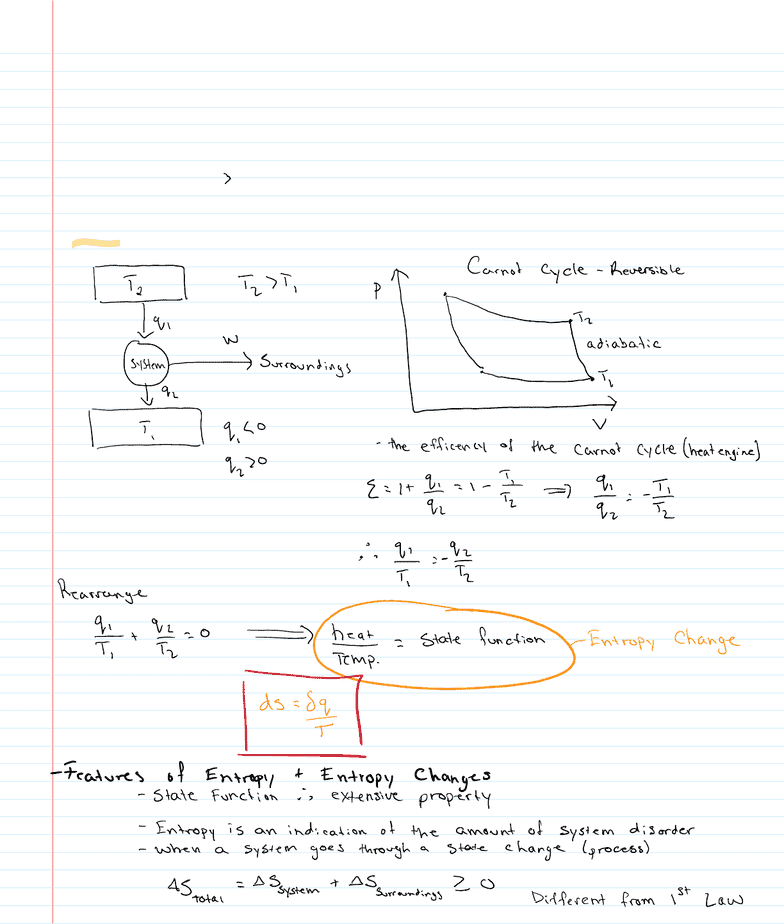 >
Carnot Cycle - Reversible
T₂
T₂ > T₁
P
q₁
T₂
w
adiabatic
system
Surroundings
q₂
T₁
T₁
q₁ < 0
V
q₂ > 0
- the efficency of the Carnot cycle (heat engine)
Σ = 1 + q₁/q₂ = 1 - T₁/T₂ ⟹ q₁/q₂ = - T₁/T₂
∴ q₁/T₁ = - q₂/T₂
Rearrange
q₁/T₁ + q₂/T₂ = 0 ⟹ heat/Temp. = State function - Entropy Change
ds = δq/T
- Features of Entropy + Entropy Changes
- State Function ∴ extensive property
- Entropy is an indication of the amount of system disorder
- when a system goes through a state change (process)
ΔS Total = ΔS system + ΔS surroundings ≥ 0
Different from 1st Law